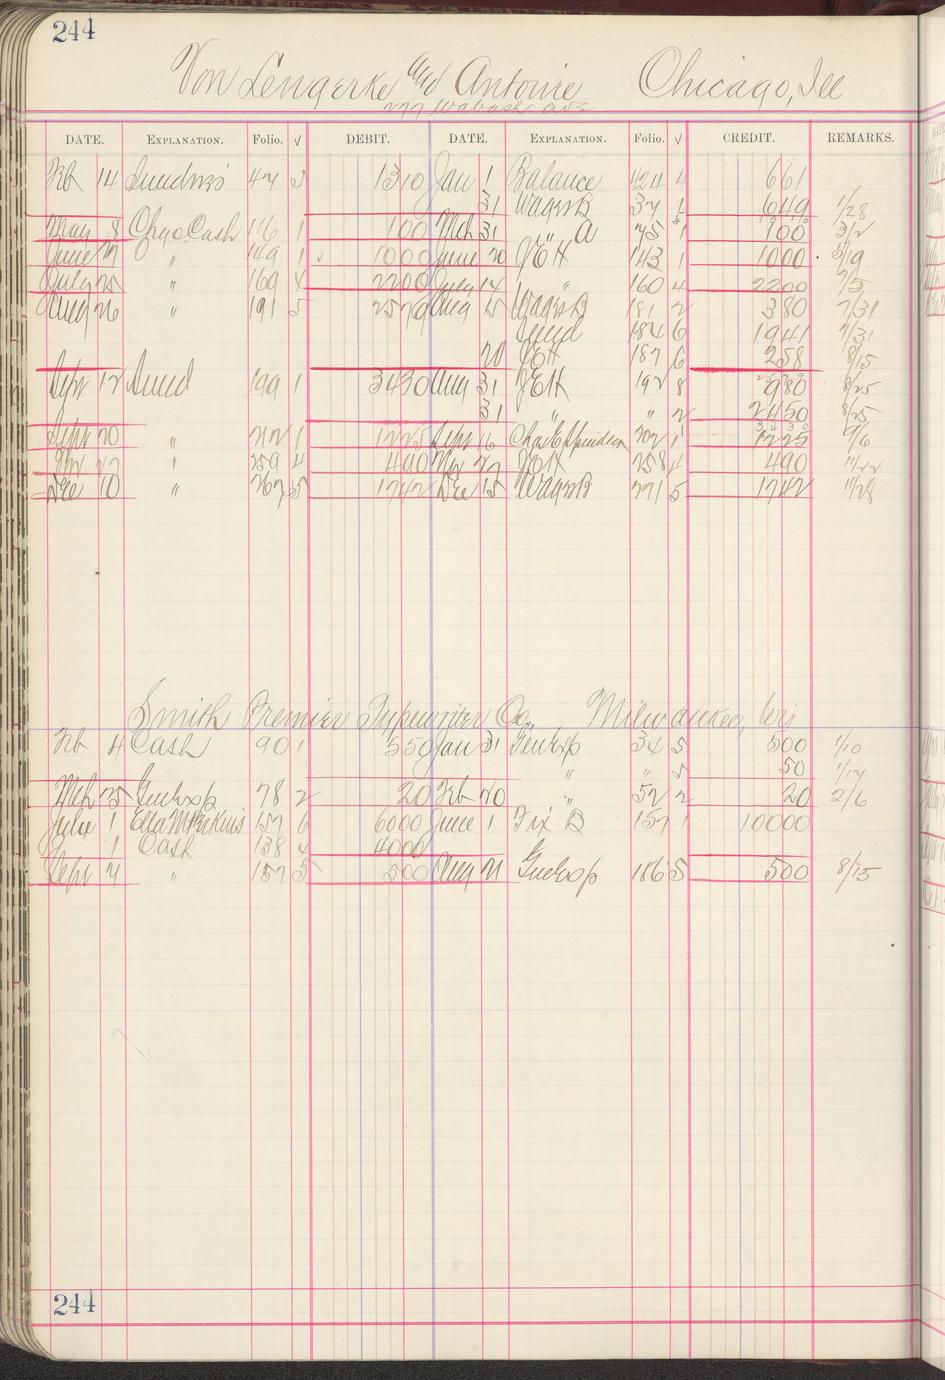 244
Von Lengerke and Antoine Chicago, Ill
277 Wabash Ave
DATE. EXPLANATION. Folio. √ DEBIT. DATE. EXPLANATION. Folio. √ CREDIT. REMARKS.
Feb 14 Sundries 47 1310 Jan 1 Balance 424 4 661
31 WagesB 37 1 649 1/28
May 8 Chgo Cash 116 1 100 Mch 31 " A 75 1 100 3/2
June 17 " 149 1 1000 June 20 143 1 1000 5/19
July 25 " 169 4 2200 July 14 " 160 4 2200 7/5
Aug 26 " 191 5 2579 Aug 15 WagesB 181 2 380 7/31
184 6 1941 7/31
20 187 6 258 8/15
Sept 12 Sund 199 1 3430 Aug 31 192 8 980 8/25
31 " " 2 2450 8/25
Sept 20 " 212 1 1225 Sept 16 202 1 1225 9/6
Nov 27 " 259 4 490 Nov 22 258 4 490 11/22
Dec 10 " 267 5 1742 Dec 15 WagesB 271 5 1742 11/28
Smith Premier Typewriter Co., Milwaukee, Wis
Feb 4 Cash 90 1 550 Jan 31 GenExp 34 5 500 1/10
" " 5 50 1/17
Mch 25 GenExp 78 2 20 Feb 20 " 52 2 20 2/6
July 1 Ella M Perkins 157 6 6000 June 1 Fix B 157 1 10000
" 1 Cash 138 4 4000
Sept 7 " 157 5 500 Aug 21 GenExp 186 5 500 8/15
244